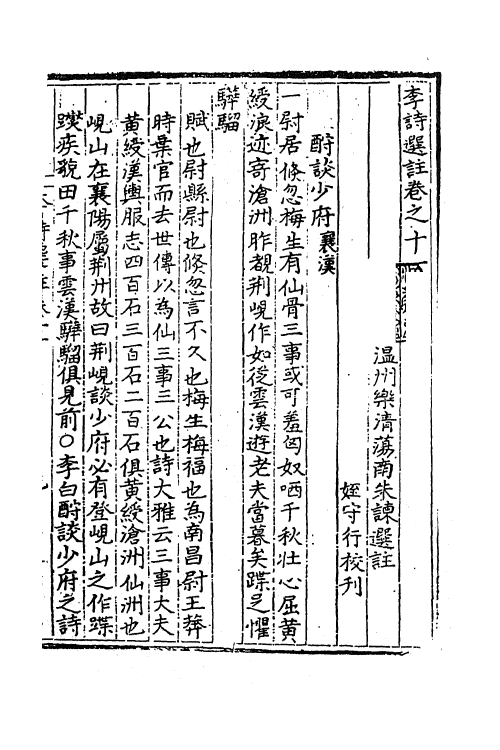 李詩選註卷之十
温州樂清蕩南朱諫選註
姪守行校刋
酧談少府襄漢
一尉居倐忽梅生有仙骨三事或可羞匈奴哂千秋壮心屈黄
綬浪迹寄滄洲昨覩荆峴作如従雲漢遊老夫當暮矣蹀足懼
驊騮
賦也尉縣尉也倐忽言不久也梅生梅福也為南昌尉王莽
時棄官而去世傳以為仙三事三公也詩大雅云三事大夫
黄綬漢輿服志四百石三百石二百石俱黄綬滄洲仙洲也
峴山在襄陽屬荆州故曰荆峴談少府必有登峴山之作蹀
躞疾貌田千秋事雲漢驊騮俱見前○李白酧談少府之詩